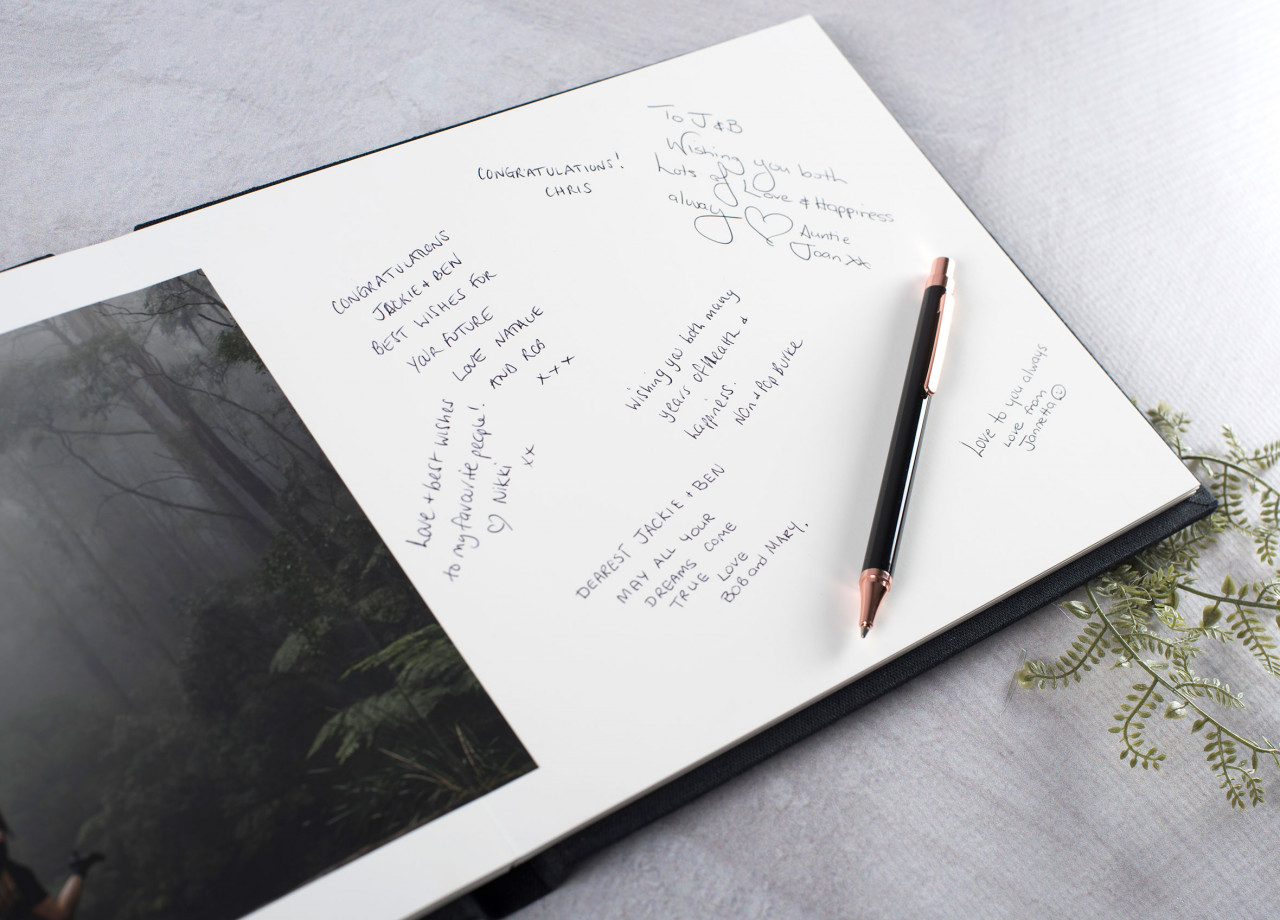 CONGRATULATIONS!
CHRIS
To J & B
Wishing you both
Lots of Love & Happiness
always
Auntie
Joan xx
CONGRATULATIONS
JACKIE + BEN
BEST WISHES FOR
YOUR FUTURE
LOVE NATALIE
AND ROB
x x x
Wishing you both many
years of Health &
happiness.
Nan + Pop Burke
Love to you always
Love from
Jannetta ☺
Love + best wishes
to my favourite people!
♡ Nikki xx
DEAREST JACKIE + BEN
MAY ALL YOUR
DREAMS COME
TRUE LOVE
BOB and MARY.